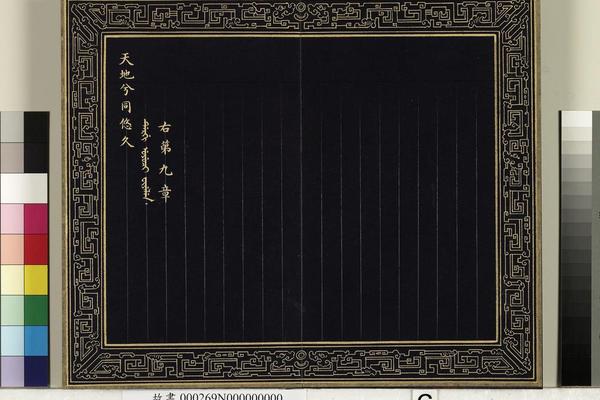 天地兮同悠久
右第九章
故書 000269N000000000